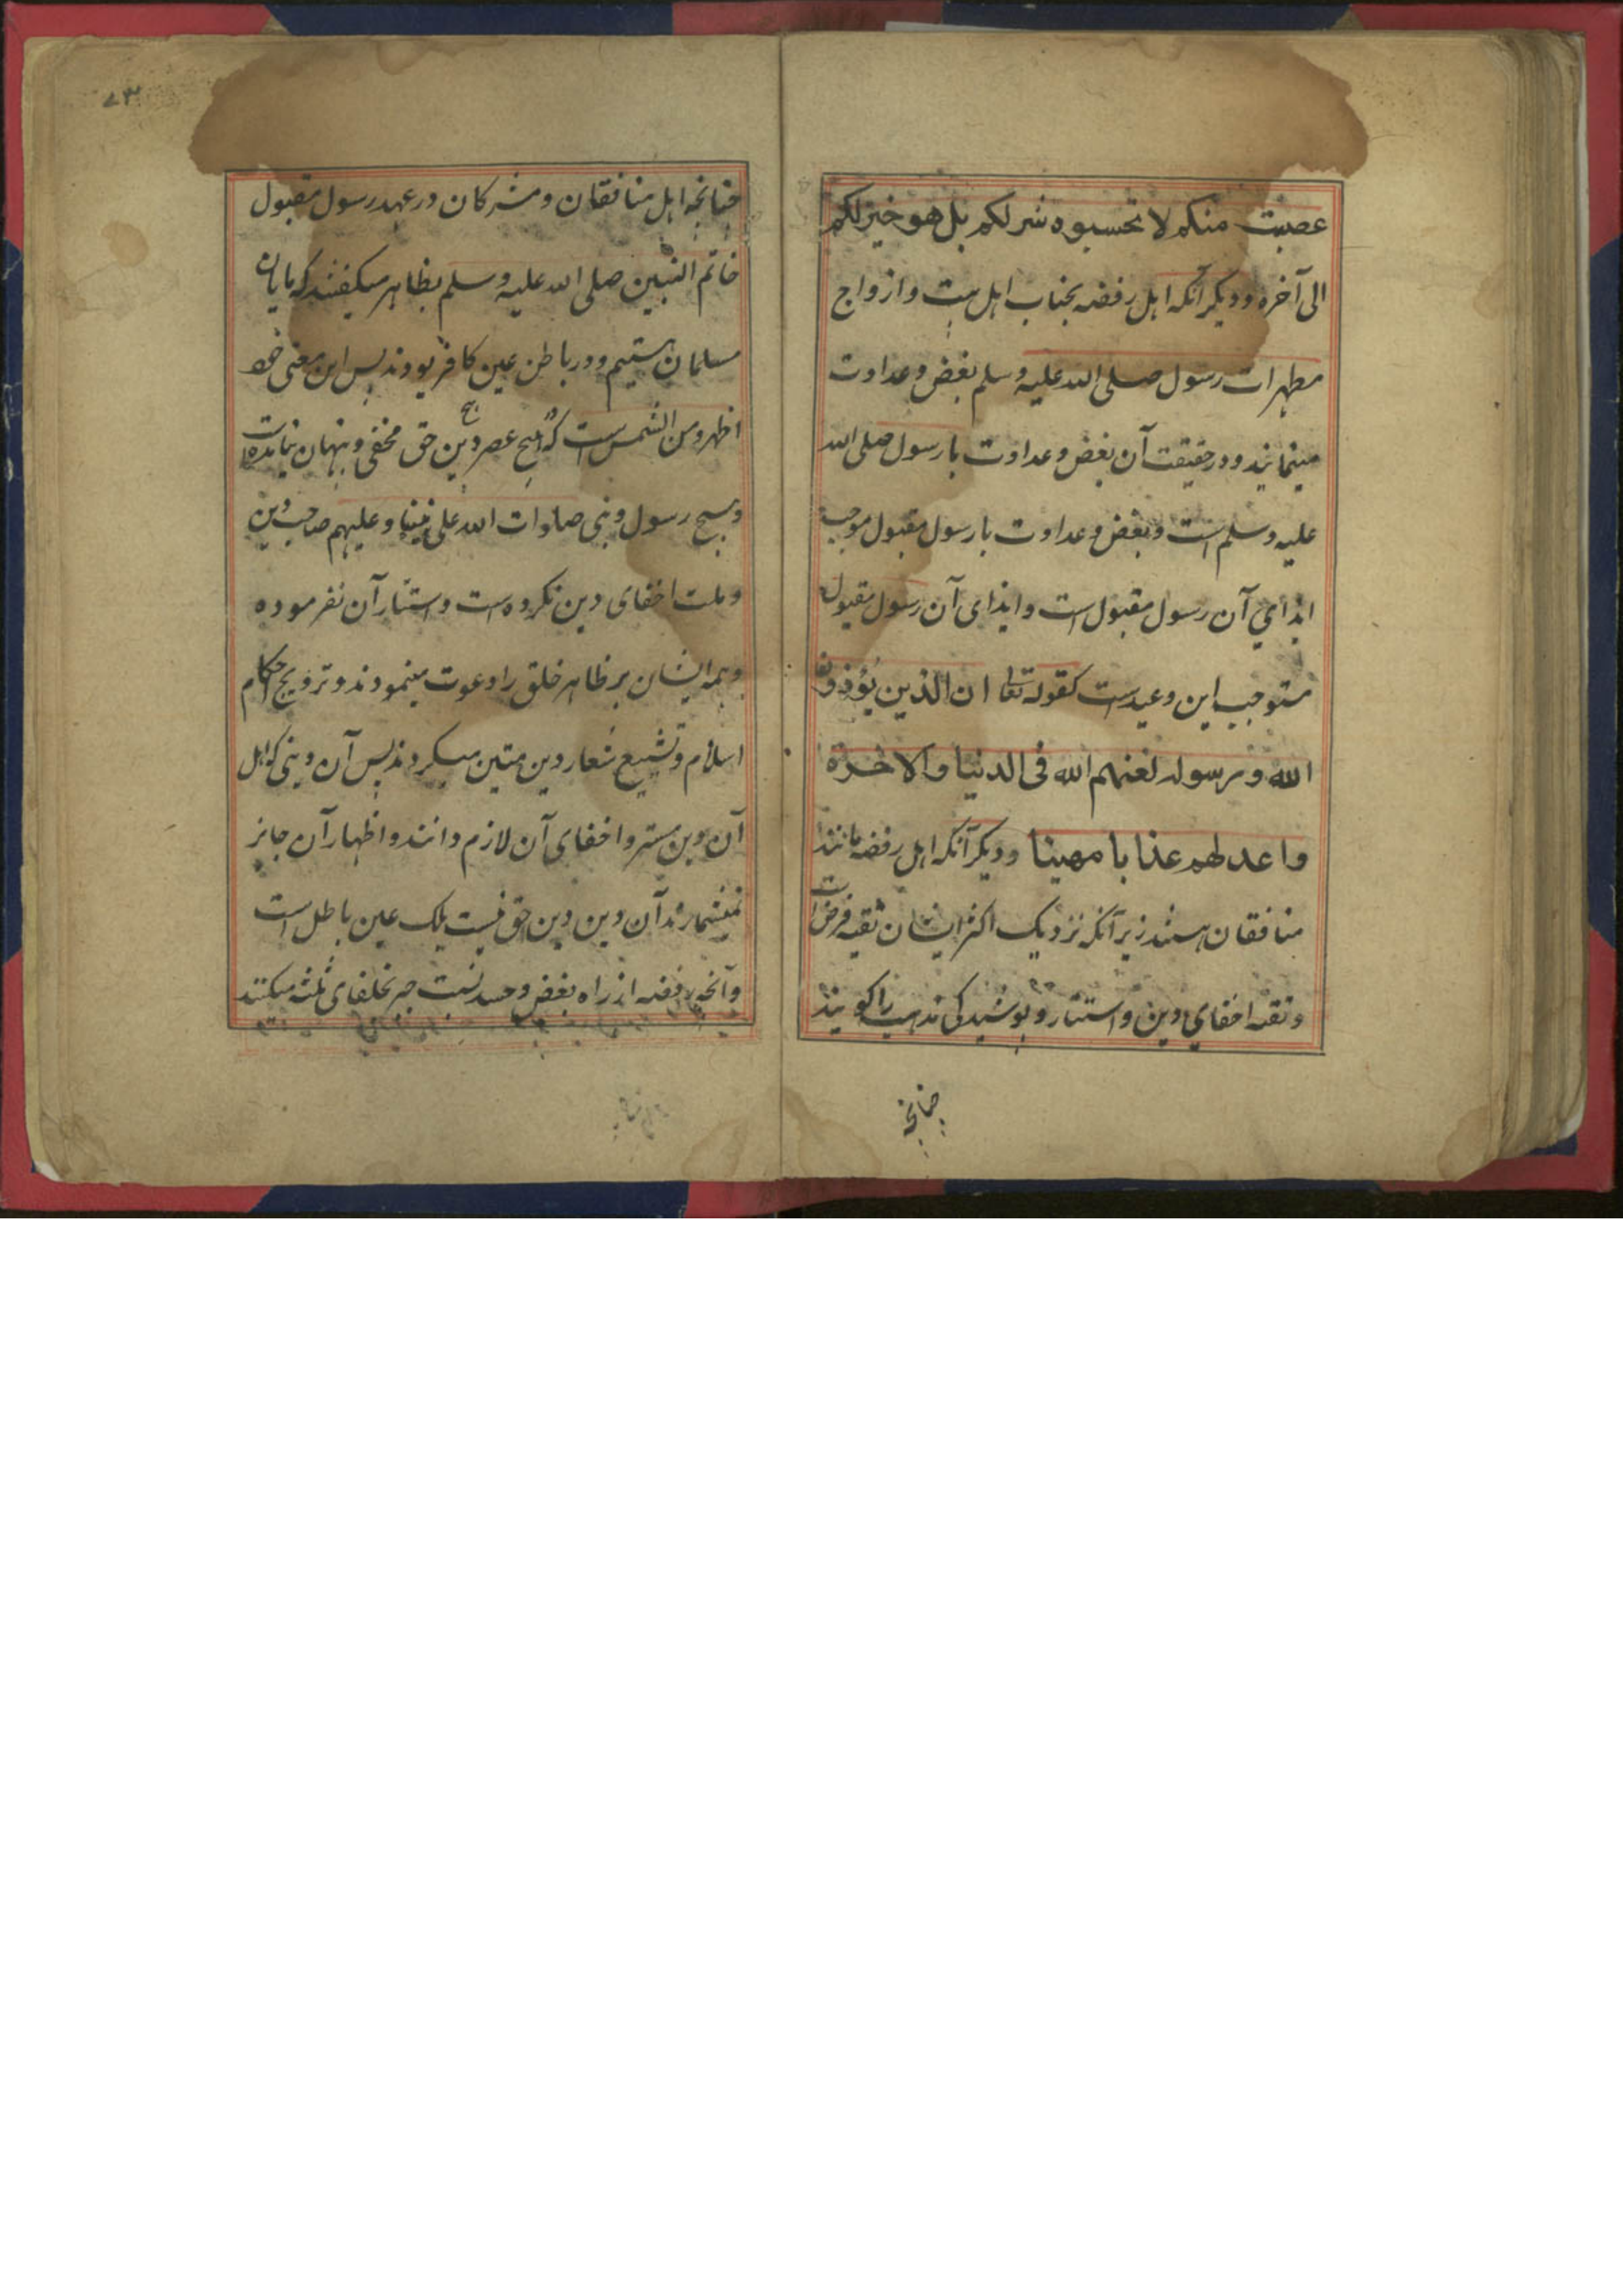 عصبت منکم لا تحسبوه شر لکم بل هو خیر لکم
الی آخره و دیگر آنکه اهل رفضه بجناب اهل بیت و ازواج
مطهرات رسول صلی الله علیه وسلم بغض و عداوت
مینمایند و در حقیقت آن بغض و عداوت با رسول صلی الله
علیه وسلم است و بغض و عداوت با رسول مقبول موجب
ایذای آن رسول مقبول است و ایذای آن رسول مقبول
مستوجب این وعید است کقوله تعالی ان الذین یؤذون
الله و رسوله لعنهم الله فی الدنیا والاخرة
واعد لهم عذابا مهینا و دیگر آنکه اهل رفضه مانند
منافقان هستند زیرآنکه نزدیک اکثر ایشان تقیه فرض است
و تقیه اخفای دین و استتار و پوشیدگی مذهب را گویند
چنانچه
۷۳
چنانچه اهل منافقان و مشرکان در عهد رسول مقبول
خاتم النبیین صلی الله علیه وسلم بظاهر میگفتند که مایان
مسلمان هستیم و در باطن عین کافر بودند پس این معنی خود
اظهر من الشمس است که هیچ عصر دین حق مخفی و پنهان نمانده است
و هیچ رسول و نبی صلوات الله علی نبینا و علیهم صاحب دین
و ملت اخفای دین نکرده است و استتار آن نفرموده
و همه ایشان بر ظاهر خلق را دعوت مینمودند و ترویج احکام
اسلام و تشیع شعار دین متین میکردند پس آن دینی که اهل
آن دین ستر و اخفای آن لازم دانند و اظهار آن جایز
نمیشمارند آن دین دین حق نیست بلک عین باطل است
و آنچه رفضه از راه بغض و حسد نسبت جبر بخلفای ثلثه میکنند